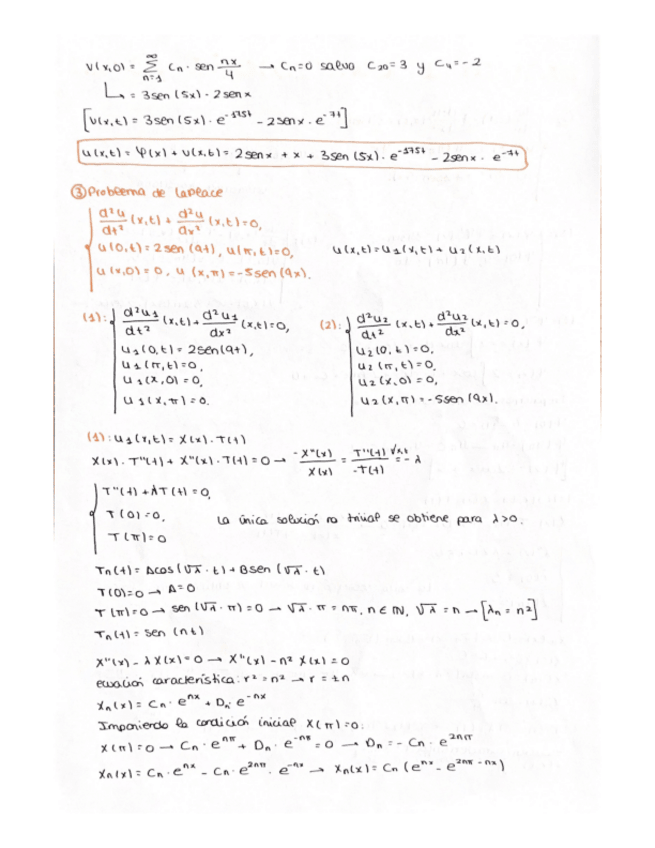 V(x,0) = ∞ Σ n=1 Cn · sen nx/4 → Cn=0 salvo C20=3 y C4=-2
↳ = 3sen(5x) - 2senx
[V(x,t) = 3sen(5x) · e^-175t - 2senx · e^-7t]
u(x,t) = φ(x) + v(x,t) = 2senx + x + 3sen(5x) · e^-175t - 2senx · e^-7t
③ Problema de Laplace
d²u/dt² (x,t) + d²u/dx² (x,t) = 0,
u(0,t) = 2sen(9t), u(π,t)=0,
u(x,0) = 0, u(x,π) = -5sen(9x).
u(x,t) = u1(x,t) + u2(x,t)
(1): d²u1/dt² (x,t) + d²u1/dx² (x,t) = 0,
u1(0,t) = 2sen(9t),
u1(π,t) = 0,
u1(x,0) = 0,
u1(x,π) = 0.
(2): d²u2/dt² (x,t) + d²u2/dx² (x,t) = 0,
u2(0,t) = 0,
u2(π,t) = 0,
u2(x,0) = 0,
u2(x,π) = -5sen(9x).
(1): u1(x,t) = X(x) · T(t)
X(x) · T''(t) + X''(x) · T(t) = 0 → -X''(x)/X(x) = T''(t)/-T(t) = -λ
T''(t) + λT(t) = 0,
T(0) = 0,
T(π) = 0
La única solución no trivial se obtiene para λ>0.
Tn(t) = Acos(√λ · t) + Bsen(√λ · t)
T(0)=0 → A=0
T(π)=0 → sen(√λ · π) = 0 → √λ · π = nπ, n ∈ ℕ, √λ = n → [λn = n²]
Tn(t) = sen(nt)
X''(x) - λX(x) = 0 → X''(x) - n² X(x) = 0
ecuación característica: r² = n² → r = ±n
Xn(x) = Cn · e^nx + Dn · e^-nx
Imponiendo la condición inicial X(π)=0:
X(π)=0 → Cn · e^nπ + Dn · e^-nπ = 0 → Dn = - Cn · e^2nπ
Xn(x) = Cn · e^nx - Cn · e^2nπ · e^-nx → Xn(x) = Cn (e^nx - e^2nπ-nx)